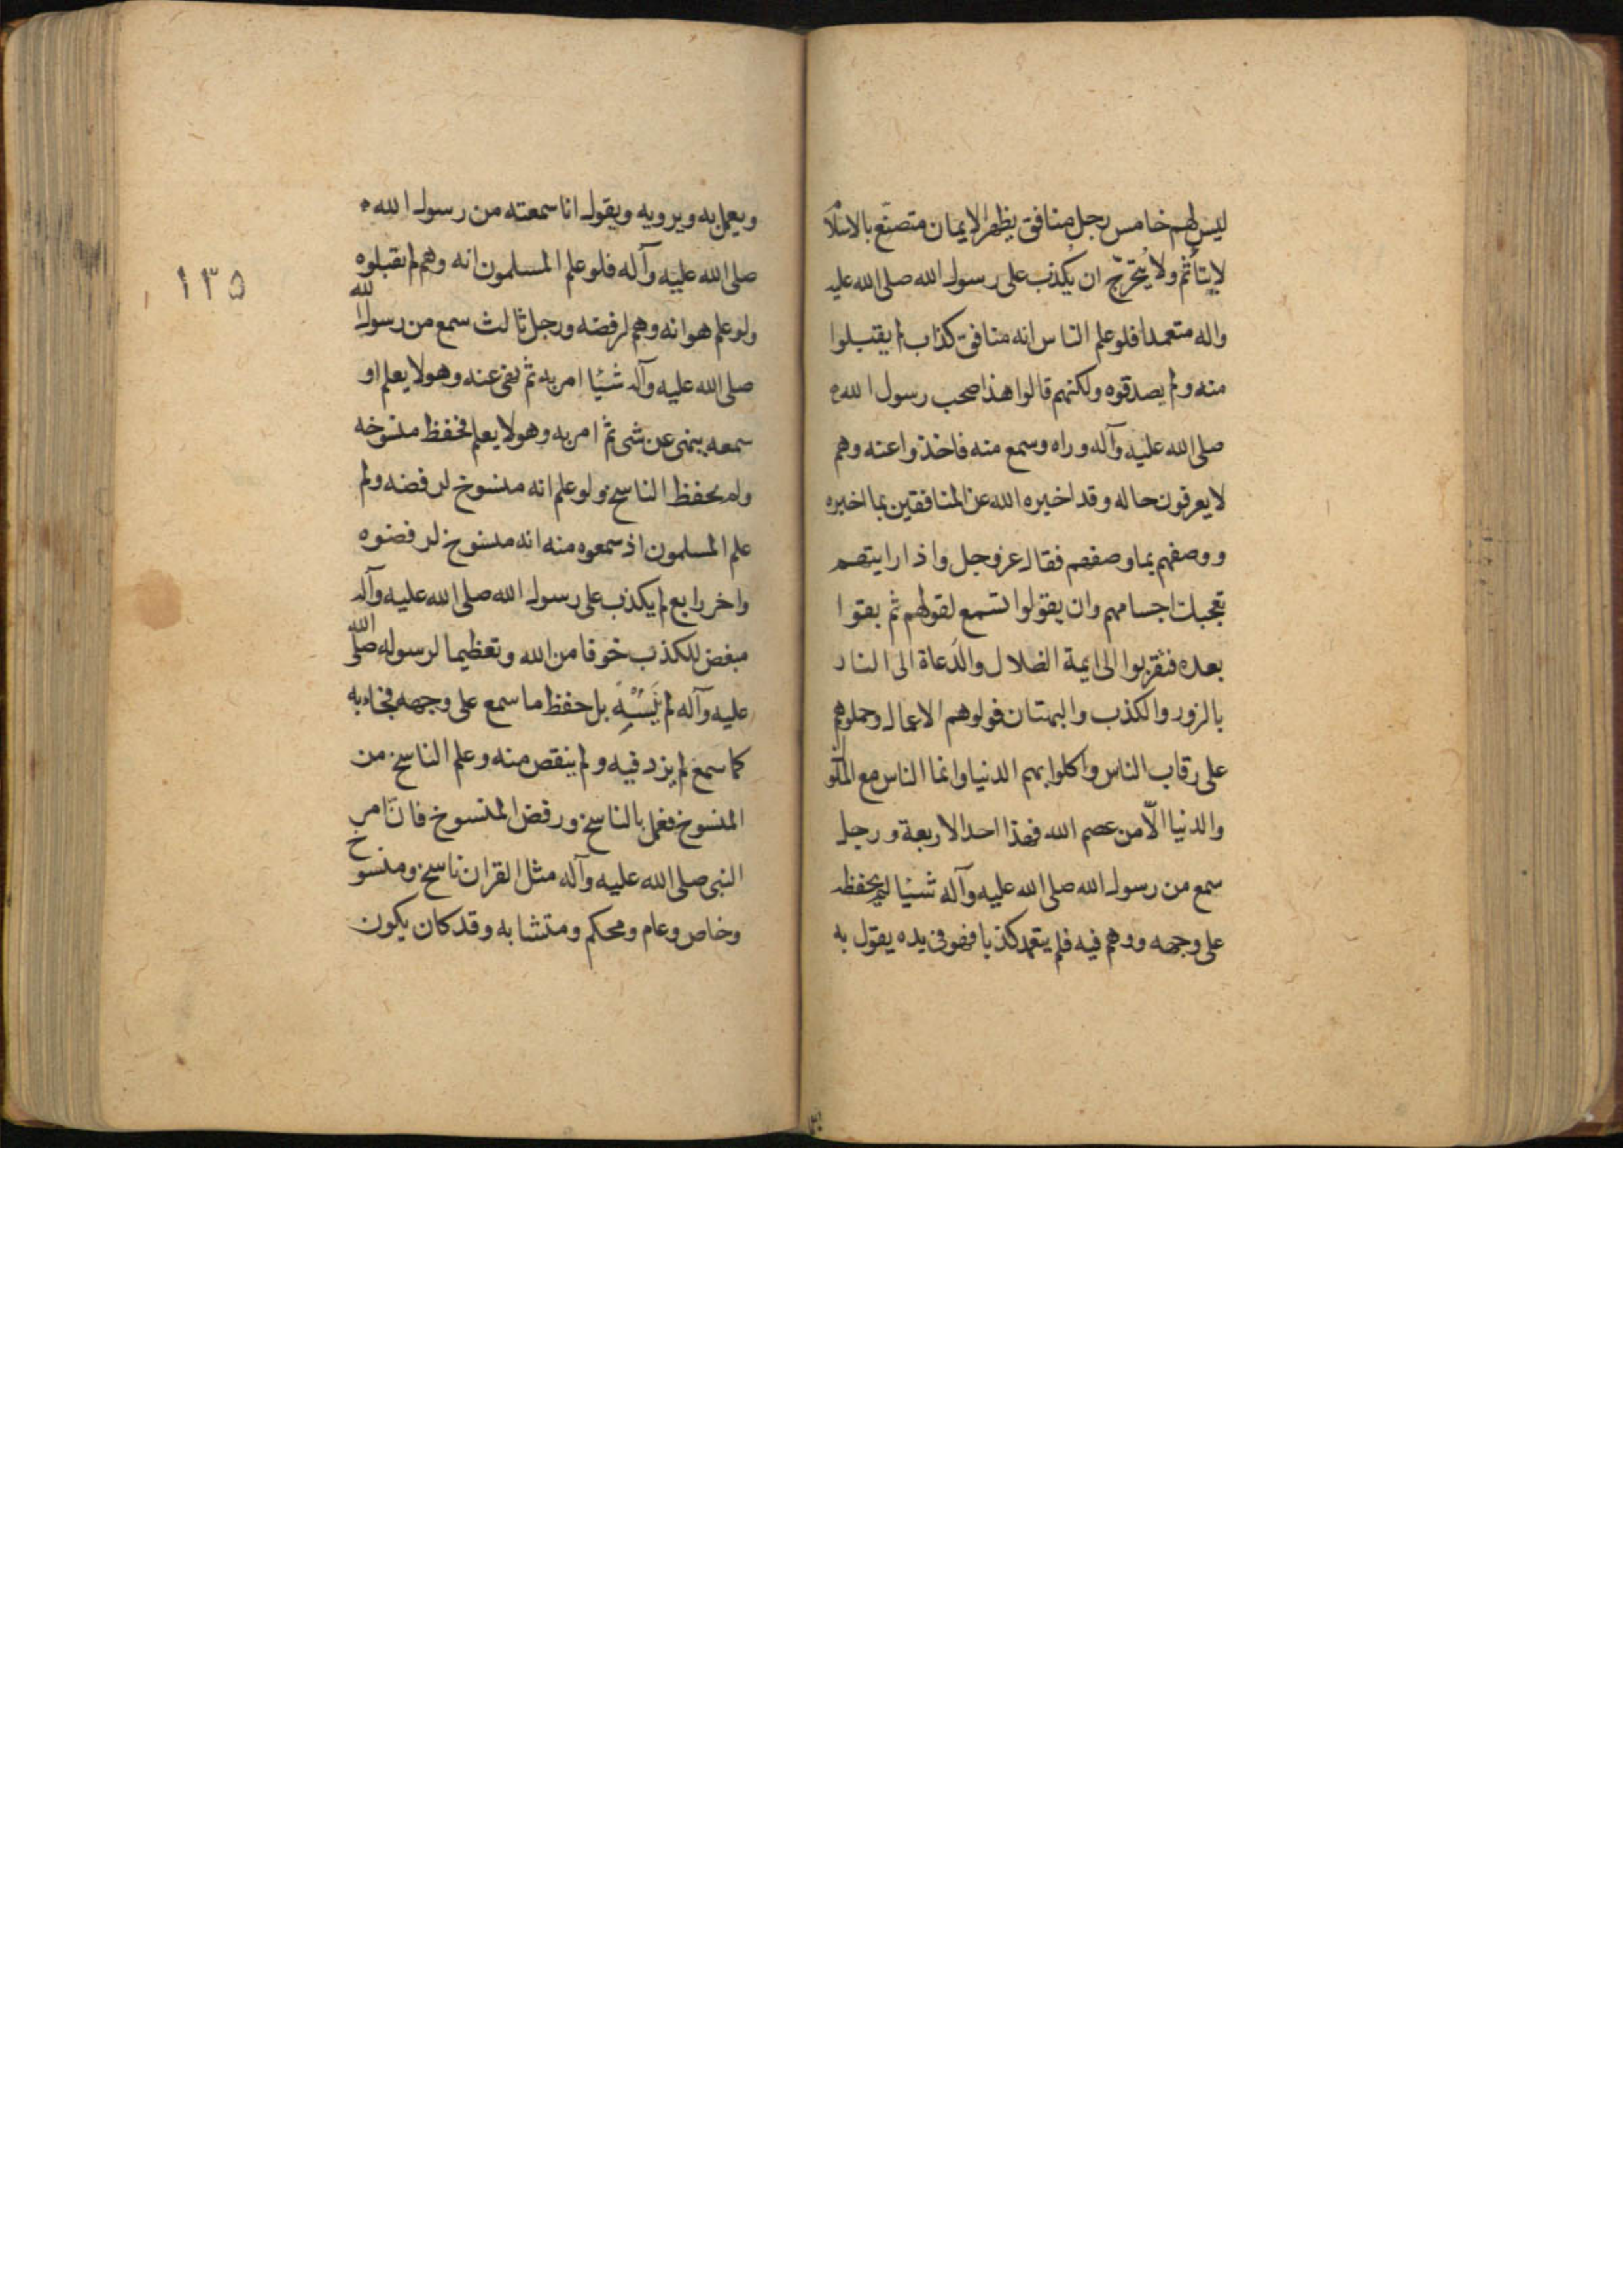 ليس لهم خامس رجل منافق يظهر الايمان متصنع بالاسلا
لا يتأثم ولا يتحرج ان يكذب على رسول الله صلى الله عليه
واله متعمدا فلو علم الناس انه منافق كذاب لم يقبلوا
منه ولم يصدقوه ولكنهم قالوا هذا صحب رسول الله
صلى الله عليه وآله وراه وسمع منه فاخذوا عنه وهم
لا يعرفون حاله وقد اخبره الله عن المنافقين بما اخبره
ووصفهم بما وصفهم فقال عز وجل واذا رايتهم
تعجبك اجسامهم وان يقولوا تسمع لقولهم ثم بقوا
بعده فتقربوا الى ايمة الضلال والدعاة الى النار
بالزور والكذب والبهتان فولوهم الاعمال وحملوهم
على رقاب الناس واكلوا بهم الدنيا وانما الناس مع الملو
والدنيا الّا من عصم الله فهذا احد الاربعة ورجل
سمع من رسول الله صلى الله عليه وآله شيئا لم يحفظه
على وجهه ووهم فيه فلم يتعمد كذبا فهو في يده يقول به
ويعمل به ويرويه ويقول انا سمعته من رسول الله
صلى الله عليه وآله فلو علم المسلمون انه وهم لم يقبلوه
ولو علم هو انه وهم لرفضه ورجل ثالث سمع من رسول الله
صلى الله عليه وآله شيئا امر به ثم نهى عنه وهو لا يعلم او
سمعه ينهى عن شى ثم امر به وهو لا يعلم فحفظ منسوخه
ولم يحفظ الناسخ ولو علم انه منسوخ لرفضه ولو
علم المسلمون اذ سمعوه منه انه منسوخ لرفضوه
واخر رابع لم يكذب على رسول الله صلى الله عليه وآله
مبغض للكذب خوفا من الله وتعظيما لرسوله صلى الله
عليه وآله لم يَنْسَهُ بل حفظ ما سمع على وجهه فجاء به
كما سمع لم يزد فيه ولم ينقص منه وعلم الناسخ من
المنسوخ فعمل بالناسخ ورفض المنسوخ فان امر
النبى صلى الله عليه وآله مثل القران ناسخ ومنسوخ
وخاص وعام ومحكم ومتشابه وقد كان يكون
١٣٥